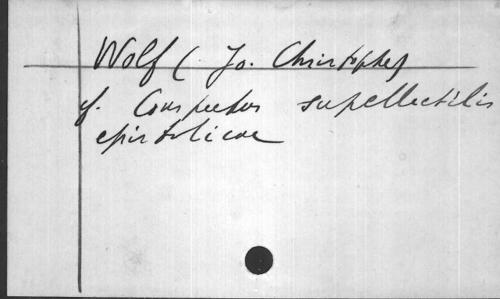 Wolf (Jo. Christophe)
cf. Conspectus supellectilis
epistolicae